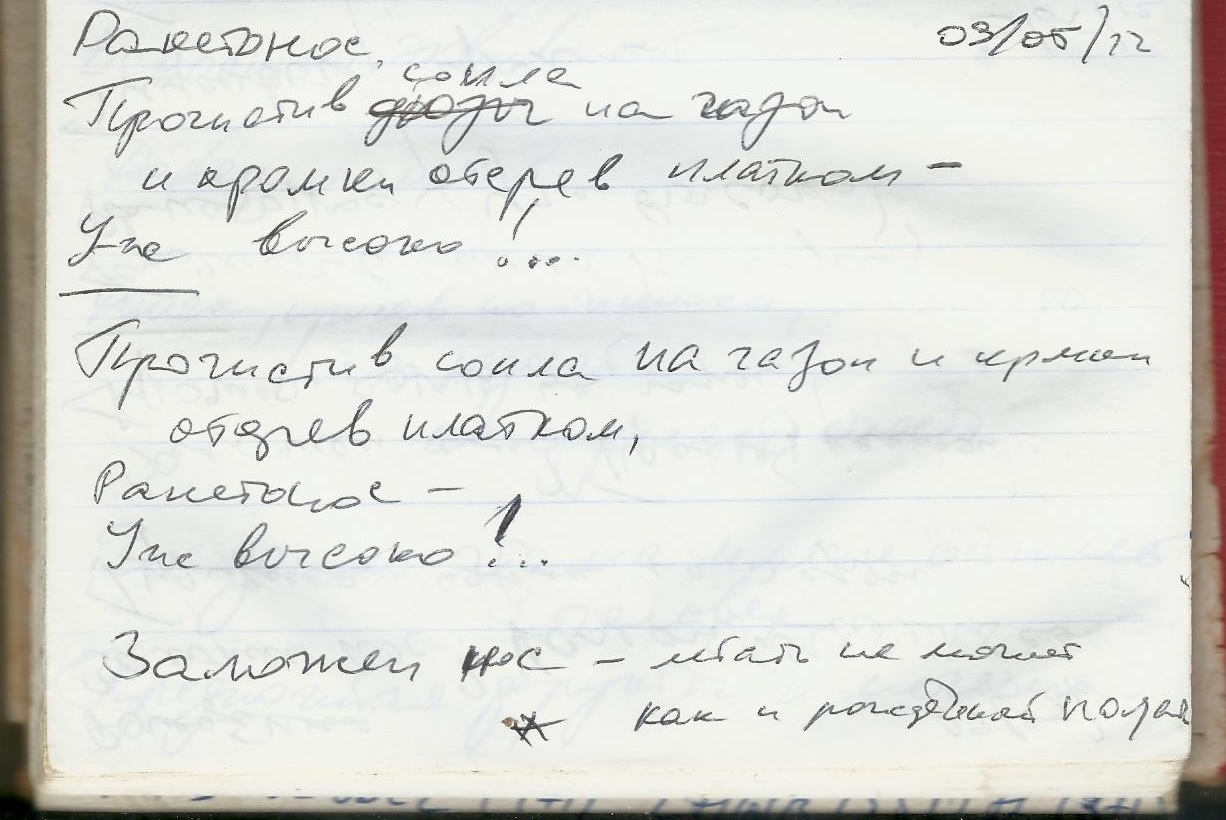 Ракетонос, 03/05/12
сопла
Прочистив дюзы на газон
и кромки отерев платком –
Уже высоко!...
Прочистив сопла на газон и кромки
отерев платком,
Ракетонос –
Уже высоко!...
Заложен нос – летать не может
как и рождённый ползая